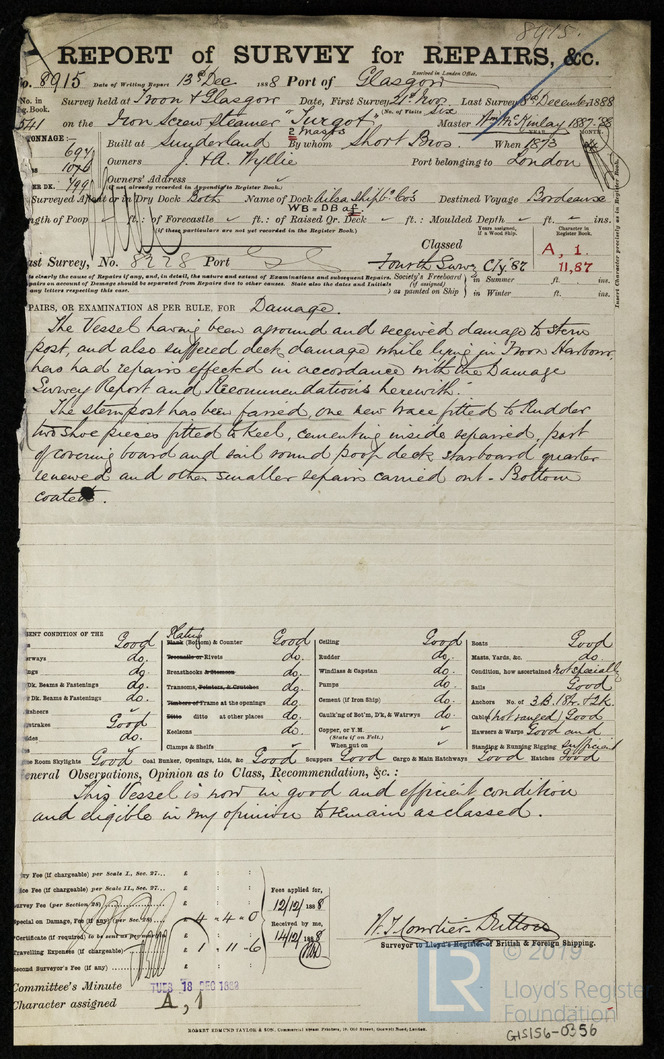 8915.
REPORT of SURVEY for REPAIRS, &c.
No. 8915 Date of Writing Report 13th Dec. 1888 Port of Glasgow Received in London Office.
No. in Survey held at Troon & Glasgow Date, First Survey 21st Nov. Last Survey 8th December 1888
Reg. Book. (No. of Visits Six
541 on the Iron screw steamer "Turgot" Master Wm McKinlay 1887-88
2 masts YEAR. MONTH.
TONNAGE:— Built at Sunderland By whom Short Bros. When 1873
697
1076 Owners J. & A. Wyllie Port belonging to London
Owners' Address
UNDER DK. 499 (if not already recorded in Appendix to Register Book.)
Surveyed Afloat or in Dry Dock Both Name of Dock Ailsa Shipb. Co's Destined Voyage Bordeaux
WB=DB af
Length of Poop ft.: of Forecastle ft.: of Raised Qr. Deck ft.: Moulded Depth ft. ins.
(if these particulars are not yet recorded in the Register Book.)
Insert Character precisely as in Register Book.
Classed
Years assigned, if a Wood Ship.
Character in Register Book.
A, 1.
Last Survey, No. 8228 Port Gls
11,87
Society's Freeboard (if assigned) as painted on Ship
in Summer ft. ins.
in Winter ft. ins.
REPAIRS, OR EXAMINATION AS PER RULE, FOR Damage.
The Vessel having been aground and received damage to stern
post, and also suffered deck damage while lying in Troon Harbour,
has had repairs effected in accordance with the Damage
Survey Report and Recommendations herewith.
The sternpost has been faired, one new brace fitted to Rudder
two shoe pieces fitted to Keel, cementing inside repaired, part
of covering board and rail round poop deck starboard quarter
renewed and other smaller repairs carried out - Bottom
coated.
PRESENT CONDITION OF THE
Good
do.
do.
Dk. Beams & Fastenings do.
Dk. Beams & Fastenings do.
Good
do.
Plating
Plank (Bottom) & Counter Good
Treenails or Rivets do.
Breasthooks & Stemson do.
Transoms, Pointers, & Crutches do.
Timbers of Frame at the openings do.
Ditto ditto at other places do.
Keelsons do.
Clamps & Shelfs
Ceiling Good
Rudder do.
Windlass & Capstan do.
Pumps do.
Cement (if Iron Ship) do.
Caulking of Bot'm, D'k, & Watrwys do.
Copper, or Y.M.
(State if on Felt.)
When put on
Boats Good
Masts, Yards, &c. do
Condition, how ascertained not specially
Sails Good
Anchors No. of 3B. 1St. & 2K.
Cables (not ranged) Good
Hawsers & Warps Good and
Standing & Running Rigging Sufficient
Engine Room Skylights Good Coal Bunker, Openings, Lids, &c Good Scuppers Good Cargo & Main Hatchways Good Hatches Good
General Observations, Opinion as to Class, Recommendation, &c.:
This Vessel is now in good and efficient condition
and eligible in my opinion to remain as classed.
Fee (if chargeable) per Scale I., Sec. 27... £
Fee (if chargeable) per Scale II., Sec. 27... £
Survey Fee (per Section 28) £
Special on Damage, Fee (if any) (per Sec. 28) £ 4 - 4 - 0
Certificate (if required) to be sent as per
Travelling Expenses (if chargeable) £ 1 - 11 - 6
Second Surveyor's Fee (if any) £
Fees applied for,
12/12/1888
Received by me,
14/12/1888
Surveyor to Lloyd's Register of British & Foreign Shipping.
Committee's Minute TUES 18 DEC 1888
Character assigned A, 1
© 2019
LR
Lloyd's Register
Foundation
GLS156-0356
ROBERT EDMUND TAYLOR & SON, Commercial Steam Printers, 19, Old Street, Goswell Road, London.